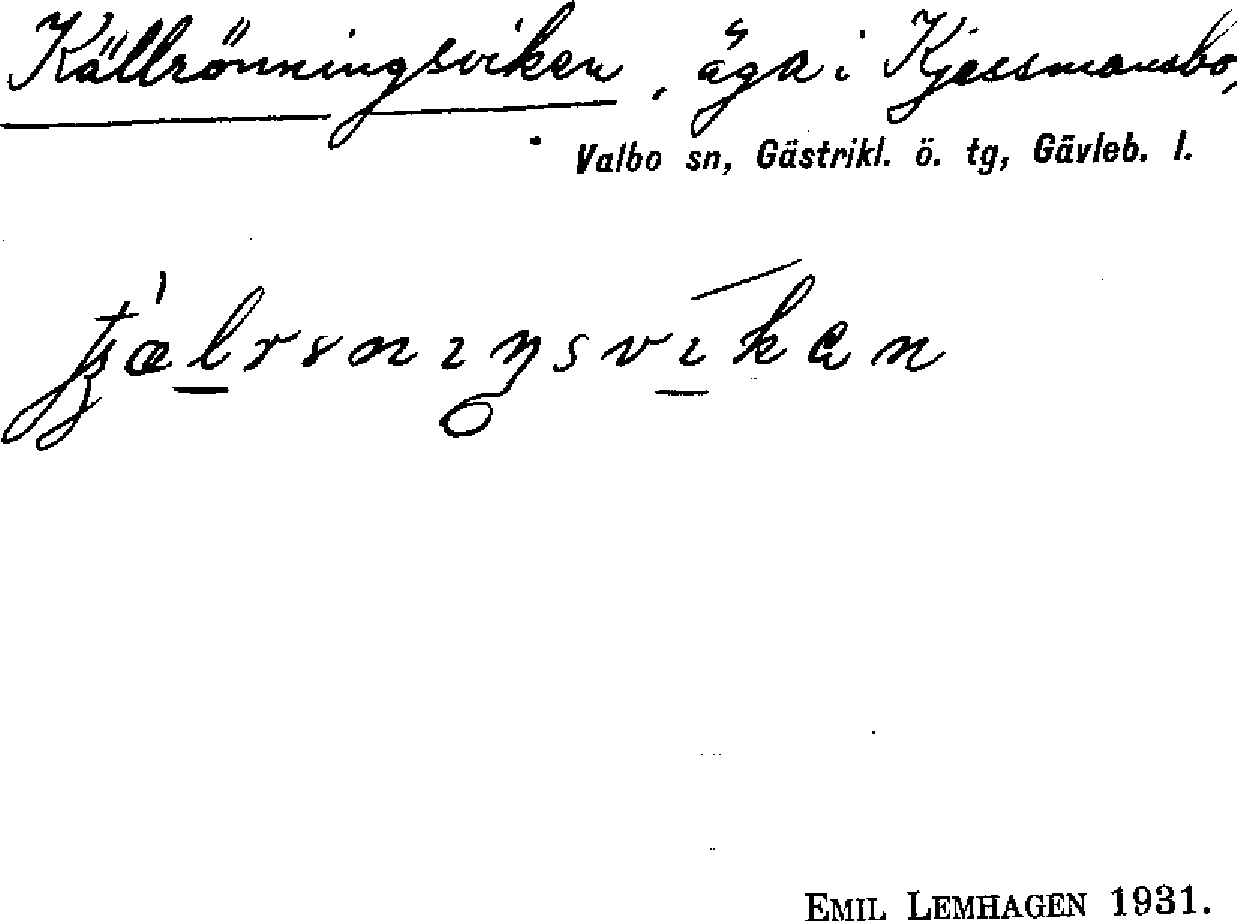 Källrönningsviken, äga i Kjessmansbo,
Valbo sn, Gästrikl. ö. tg, Gävleb. l.
EMIL LEMHAGEN 1931.